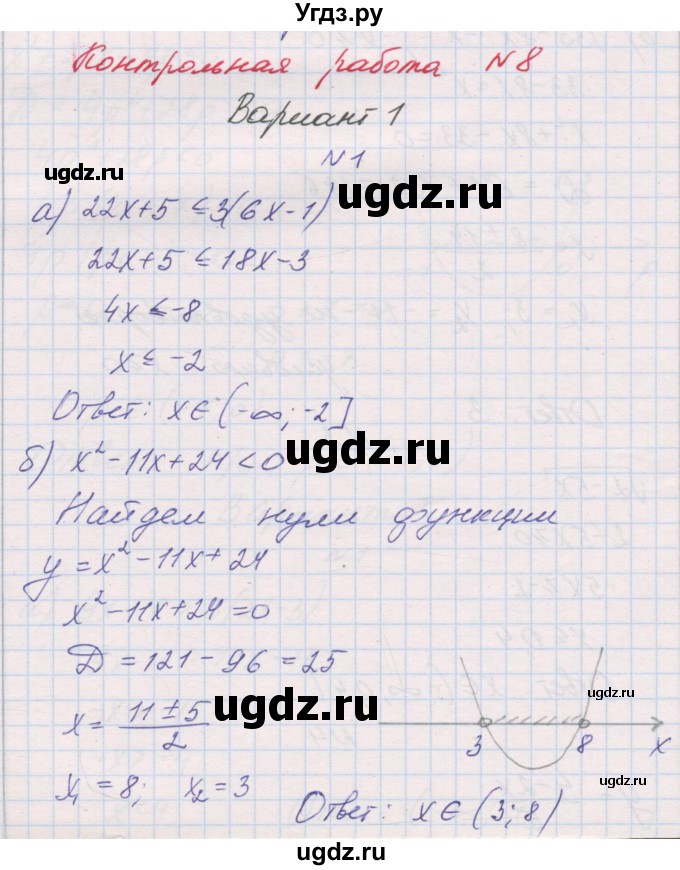 Угдз.ру
Контрольная работа №8
Вариант 1
№1
а) 22x+5 ≤ 3(6x-1)
22x+5 ≤ 18x-3
4x ≤ -8
x ≤ -2
Ответ: x∈(-∞; -2]
б) x²-11x+24<0
Найдем нули функции
y = x²-11x+24
x²-11x+24=0
D = 121-96 = 25
x = (11±5)/2
3 8 x
x₁ = 8; x₂ = 3
Ответ: x∈(3; 8)
ugdz.ru
ugdz.ru
ugdz.ru
ugdz.ru
ugdz.ru
ugdz.ru
ugdz.ru
ugdz.ru
ugdz.ru
ugdz.ru